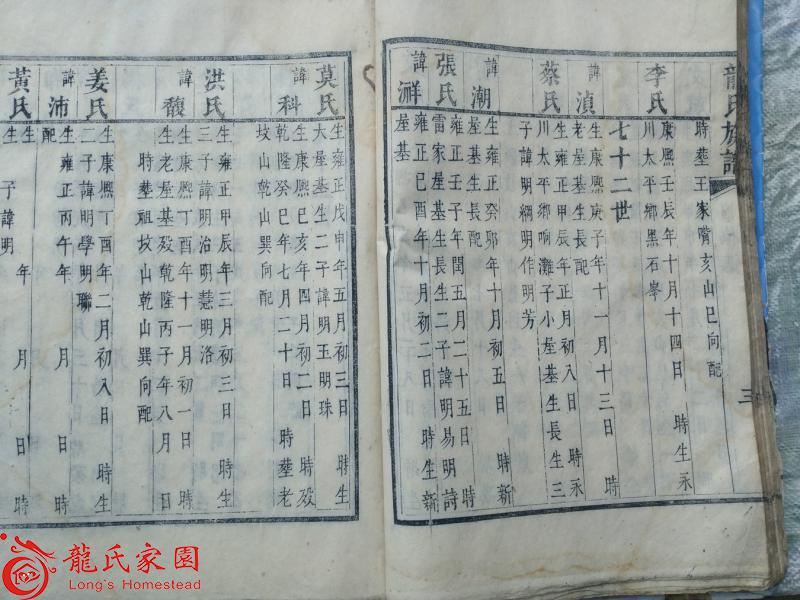 龍氏族譜
三
時葬王家嘴亥山巳向配
李氏
康熙壬辰年十月十四日 時生永
川太平鄉黑石崋
七十二世
諱湞
生康熙庚子年十一月十三日 時
老屋基生長配
蔡氏
生雍正甲辰年正月初八日 時永
川太平鄉响灘子小屋基生長生三
子諱明綱明作明芳
諱潮
生雍正癸卯年十月初五日 時新
屋基生長配
張氏
雍正壬子年閏五月二十五日 時
雷家屋基生長生二子諱明易明詩
諱溿
雍正己酉年十月初二日 時生新
屋基
莫氏
生雍正戊申年五月初三日 時生
大屋基生二子諱明玉明珠
諱科
生康熙己亥年四月初二日 時殁
乾隆癸巳年七月二十日 時葬老
坟山乾山巽向配
洪氏
生雍正甲辰年三月初三日 時生
三子諱明治明慧明洛
諱馥
生康熙丁酉年十一月初一日 時
生老屋基殁乾隆丙子年八月 日
時葬祖坟山乾山巽向配
姜氏
生康熙丁酉年二月初六日 時生
二子諱明學明聯
諱沛
生雍正丙午年 月 日 時
配
黃氏
生 年 月 日 時
生 子諱明
龍氏家園
Long's Homestead